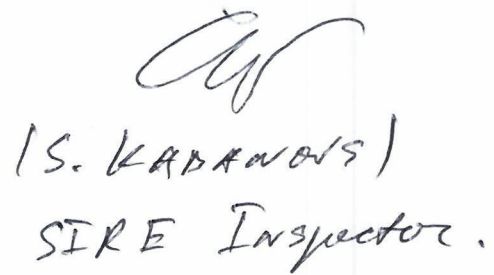 (S. KABANOVS)
SIRE Inspector.